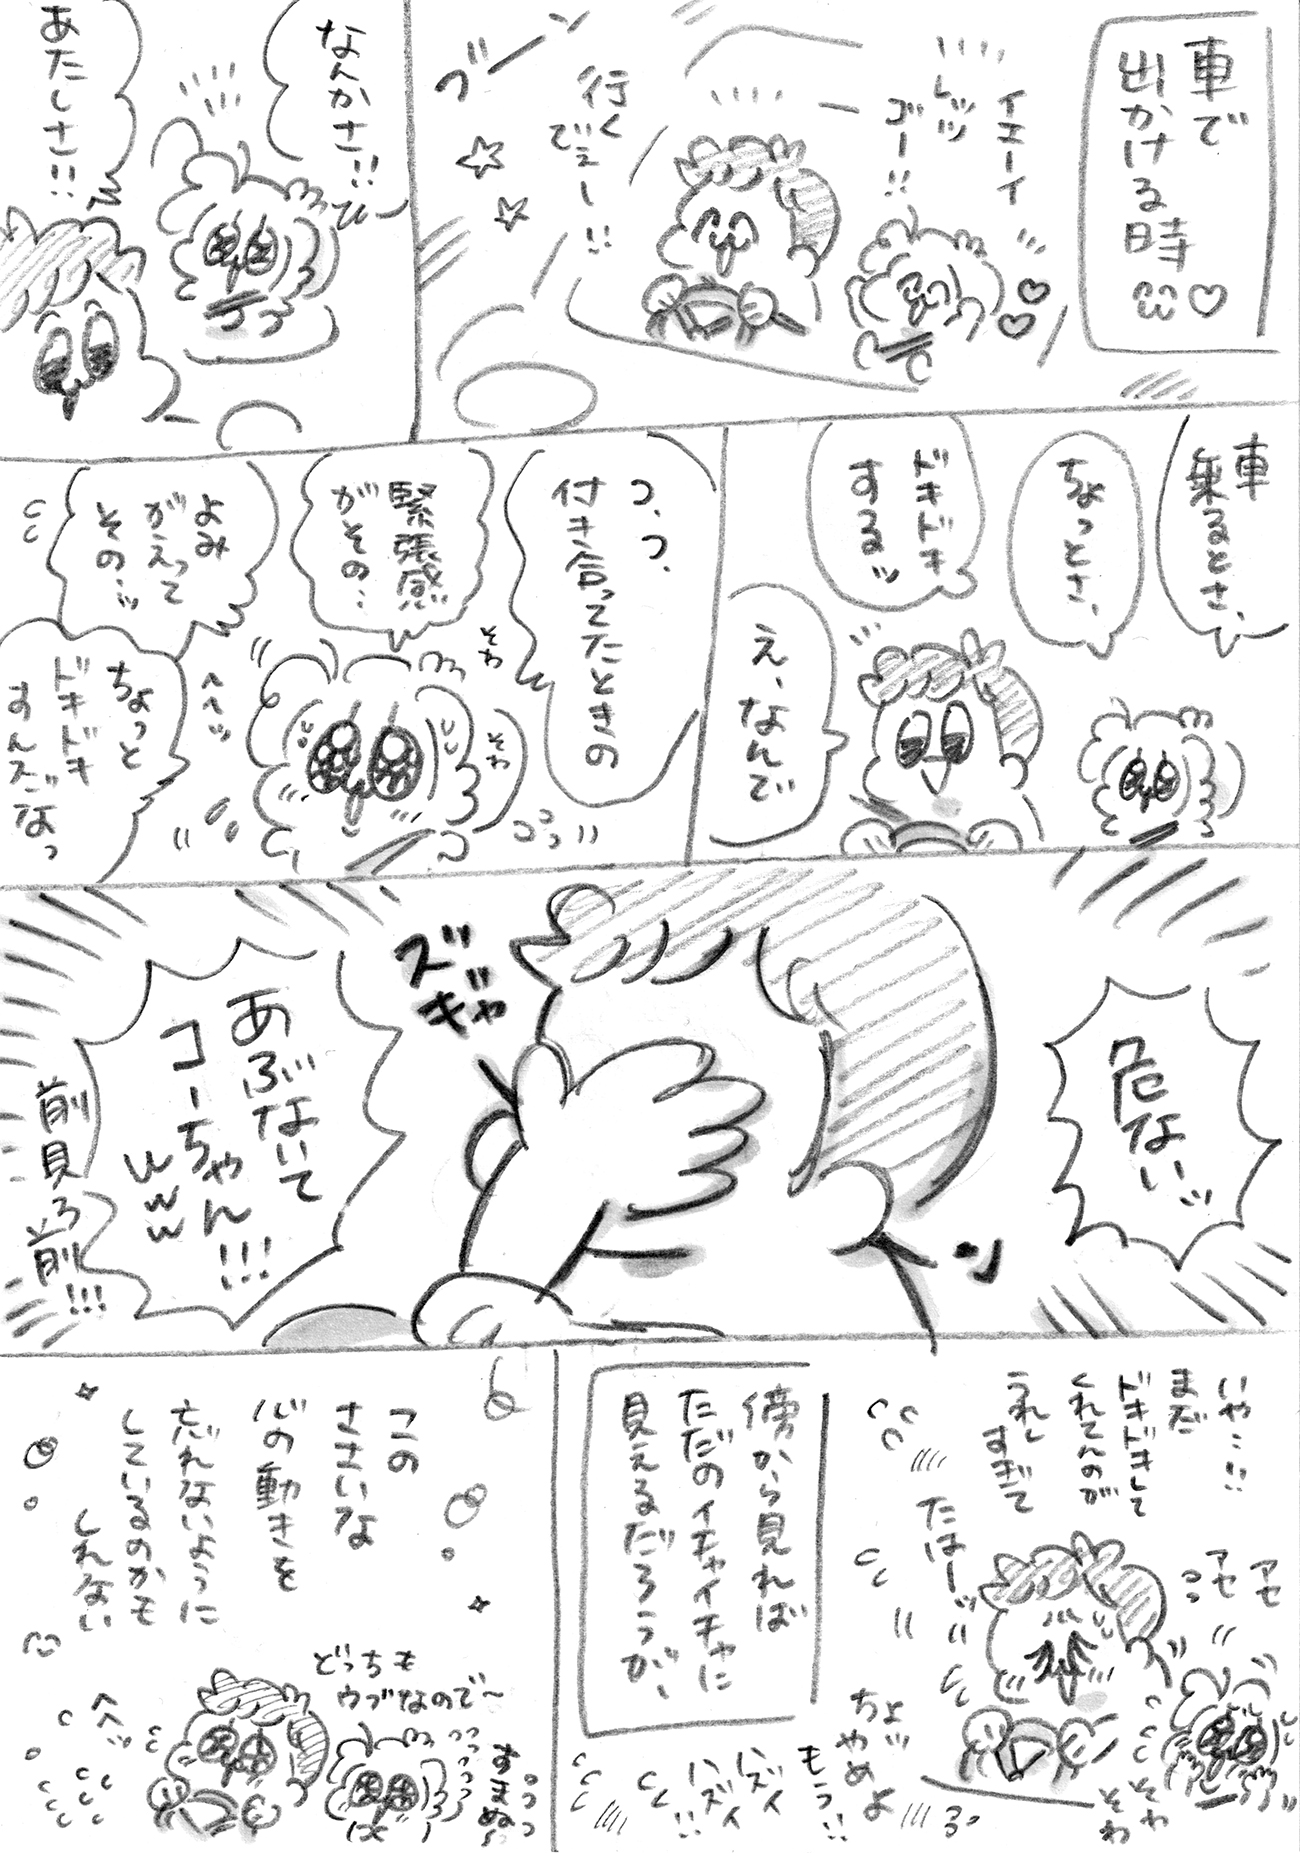 車で
出かける時♡
イエーイ
レッツ
ゴー!!
行く
でぇー!!
ブーン
なんかさ!!
ひー
あたしさ!!
車
乗るとさ、
ちょっとさ、
ドキドキ
するッ
え、なんで
つ、つ、
付き合ってたときの
緊張感
がその…
よみ
がえって
その…ッ
ちょっと
ドキドキ
すんだなっ
そわ
そわ
へへッ
危ないッ
ズギャ
ン
あぶないて
コーちゃん!!!
www
前見ろ前!!!
いや…!!
まだ
ドキドキして
くれてんのが
うれし
すぎて
たはーッ
アセ
アセ
そわ
そわ
ちょッ
やめよ
もう!!
ハズイ
ハズイ!!
傍から見れば
ただのイチャイチャに
見えるだろうが、
この
ささいな
心の動きを
忘れないように
しているのかも
しれない
どっちも
ウブなので〜
すまぬ〜
へへッ